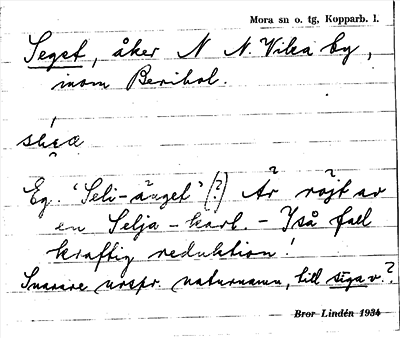 Mora sn o. tg, Kopparb. l.
Seget, åker N N. Vika by,
inom Berihol.
Eg. "Seli-änget" (?) Är röjt av
en Selja-karl. - I så fall
kraftig reduktion!
Snarare urspr. naturnamn, till siga v.?
Bror Lindén 1934